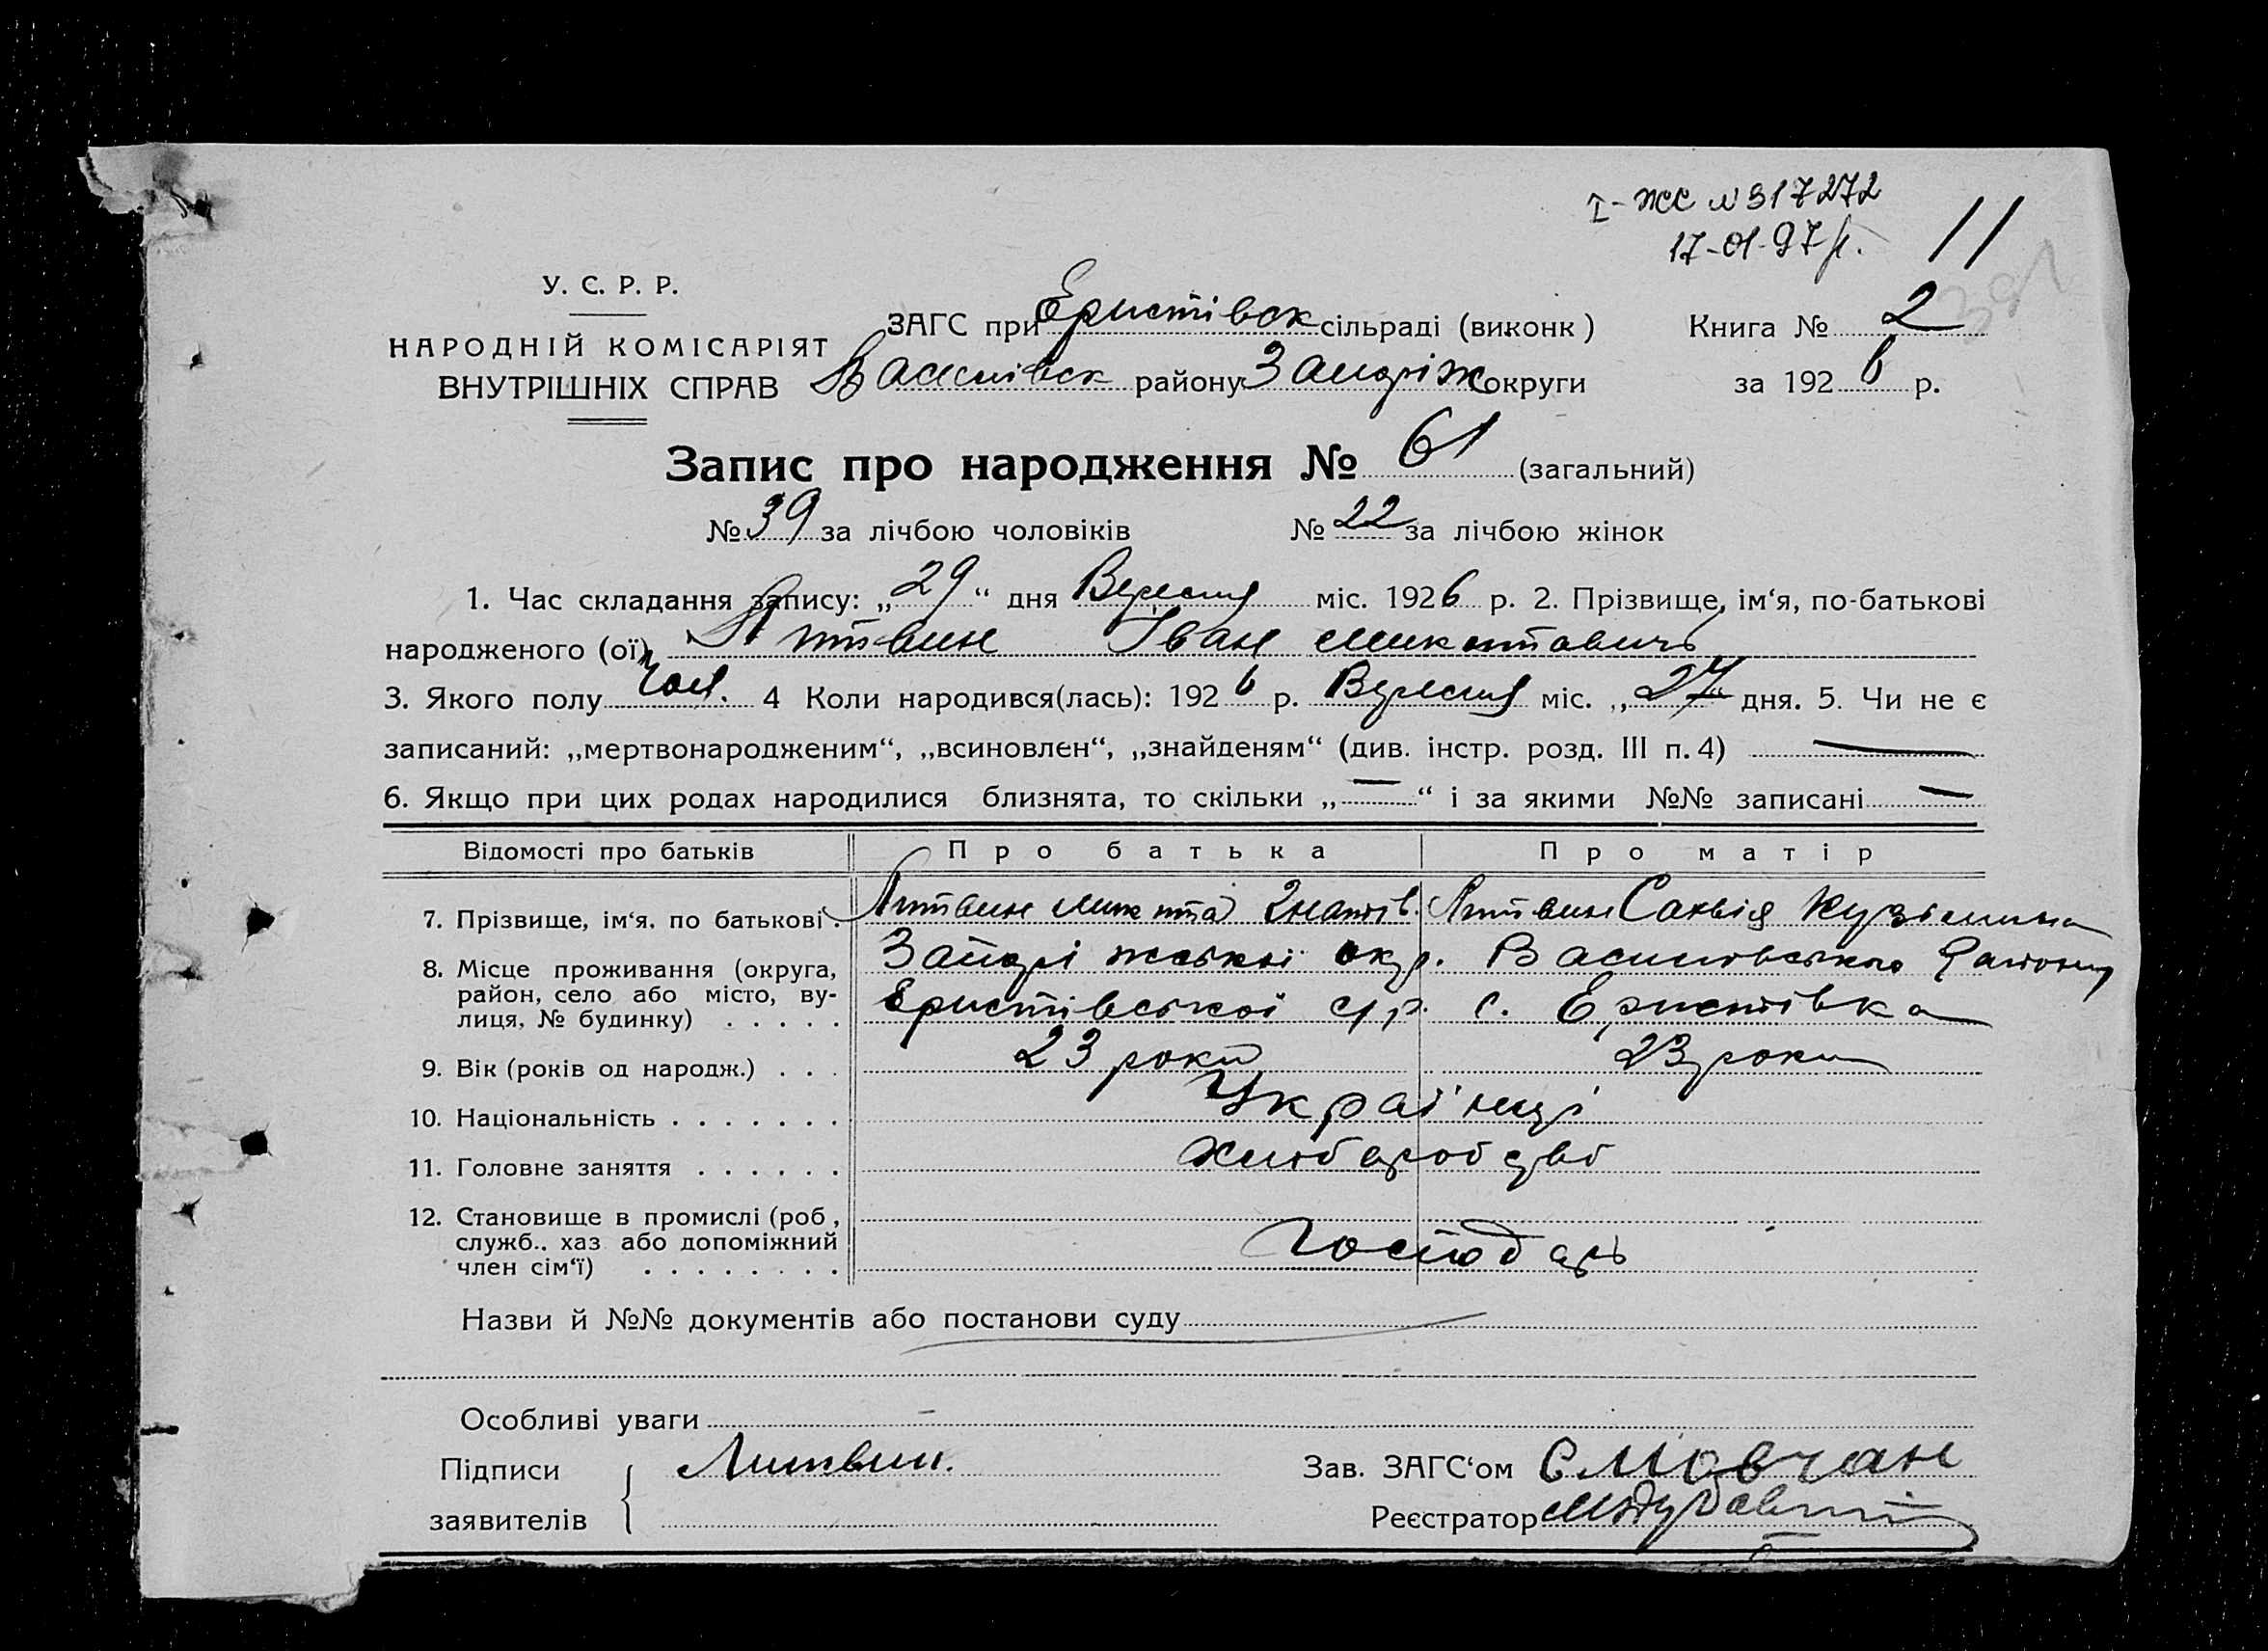 I-ЖС N 317272
17-01-97р. 11
У. С. Р. Р.
НАРОДНІЙ КОМІСАРІЯТ
ВНУТРІШНІХ СПРАВ
ЗАГС при Еристівск сільраді (виконк) Книга № 2
Василівск району Запоріж округи за 1926 р.
Запис про народження № 61 (загальний)
№ 39 за лічбою чоловіків № 22 за лічбою жінок
1. Час складання запису: „29“ дня Вересня міс. 1926 р. 2. Прізвище, ім‘я, по-батькові
народженого (ої) Литвин Іван Микитовичь
3. Якого полу Чол. 4 Коли народився(лась): 1926 р. Вересня міс. „ дня. 5. Чи не є
записаний: „мертвонародженим“, „всиновлен“, „знайденям“ (див. інстр. розд. III п. 4) —
6. Якщо при цих родах народилися близнята, то скільки „—“ і за якими №№ записані —
Відомості про батьків Про батька Про матір
7. Прізвище, ім‘я. по батькові. Литвин Микита Литвин Кузьмина
8. Місце проживання (округа, район, село або місто, вулиця, № будинку) . . . . .
Запоріжської окр. Василівського Району
Еристівської с. Еристівка
9. Вік (років од народж.) . . . 23 роки 23 роки
10. Національність . . . . . . . Україінці
11. Головне заняття . . . . . .
12. Становище в промислі (роб, служб., хаз або допоміжний член сім‘ї) . . . . . . . . Господарь
Назви й №№ документів або постанови суду
Особливі уваги —
Підписи заявителів Литвин.
Зав. ЗАГС‘ом Є Мовчан
Реєстратор